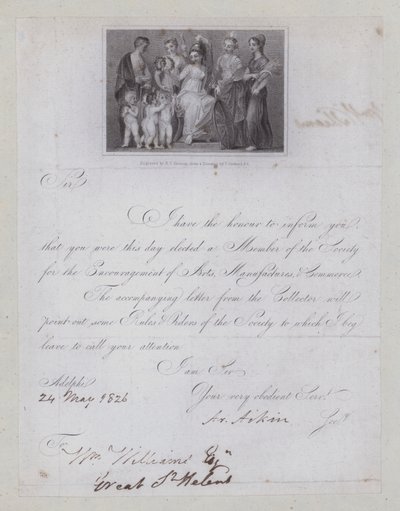 Sir
I have the honour to inform you,
that you were this day elected a Member of the Society
for the Encouragement of Arts, Manufactures, & Commerce.
The accompanying letter from the Collector will
point out some Rules & Orders of the Society to which I beg
leave to call your attention
I am Sir
Adelphi
Your very obedient Servt.
24 May 1826
Ar. Aikin Secy.
To
Wm. Williams Esqr
Great St Helens